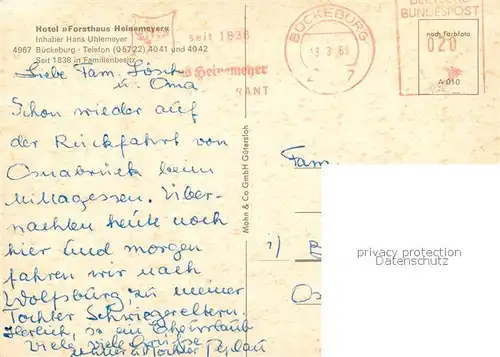 Hotel »Forsthaus Heinemeyer«
Inhaber Hans Uhlemeyer
4967 Bückeburg · Telefon (05722) 4041 und 4042
Seit 1838 in Familienbesitz
seit 1838
Heinemeyer
RANT
BÜCKEBURG
BUNDESPOST
020
nach Farbfoto
A 010
Mohn & Co GmbH Gütersloh
Liebe Fam.
u. Oma
Schon wieder auf
der Rückfahrt von
Osnabrück beim
Mittagessen. Über-
nachten heute noch
hier und morgen
fahren wir nach
Wolfsburg zu meiner
Tochter Schwiegereltern.
Herrlich, so ein Eheurlaub
Viele viele Grüsse
Mutter u. Tochter
Fam.
privacy protection
Datenschutz